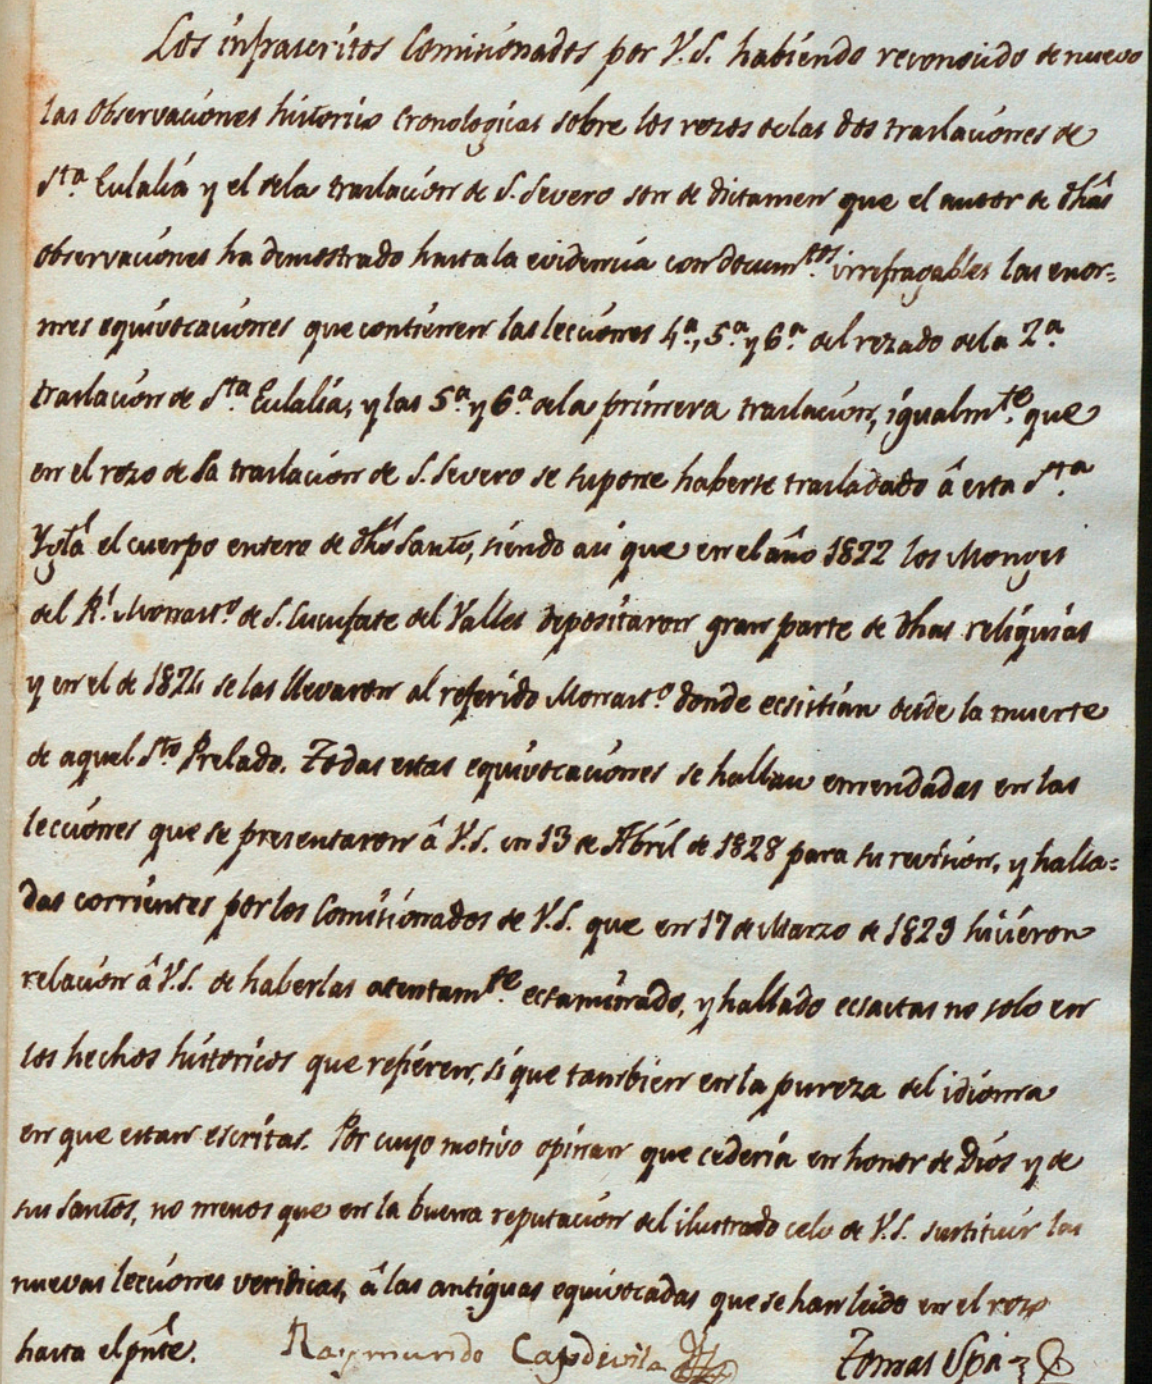 Los infrascritos Comisionados por V.S. habiendo reconocido de nuevo
las Observaciones historico Cronologicas sobre los rezos de las dos traslaciones de
Sta. Eulalia y el dela traslacion de S. Severo son de dictamen que el autor de dhâs
observaciones ha demostrado hasta la evidencia con docum.tos irrefragables las enor=
mes equivocaciones que contienen las lecciones 4.a, 5.a y 6.a del rezado dela 2.a
traslacion de Sta. Eulalia, y las 5.a y 6.a dela primera traslacion, igualm.te que
en el rezo de la traslacion de S. Severo se supone haberse trasladado â esta Sta.
Yglâ el cuerpo entero de dhô Santo, siendo asi que en el año 1822 los Monges
del Rl. Monast.o de S. Cucufate del Valles depositaron gran parte de dhas reliquias
y en el de 1824 se las llevaron al referido Monast.o donde ecsistian desde la muerte
de aquel Sto. Prelado. Todas estas equivocaciones se hallan enmendadas en las
lecciones que se presentaron â V.S. en 13 de Abril de 1828 para su revision, y halla=
das corrientes por los Comisionados de V.S. que en 17 de Marzo de 1829 hicieron
relacion â V.S. de haberlas atentam.te ecsaminado, y hallado ecsactas no solo en
los hechos historicos que refieren, si que tambien en la pureza del idioma
en que estan escritas. Por cuyo motivo opinan que cederia en honor de Dios y de
sus Santos, no menos que en la buena reputacion del ilustrado celo de V.S. sustituir las
nuevas lecciones veridicas, â las antiguas equivocadas que se han leido en el rezo
hasta el pnte. Raymundo Capdevila Tomas Spà